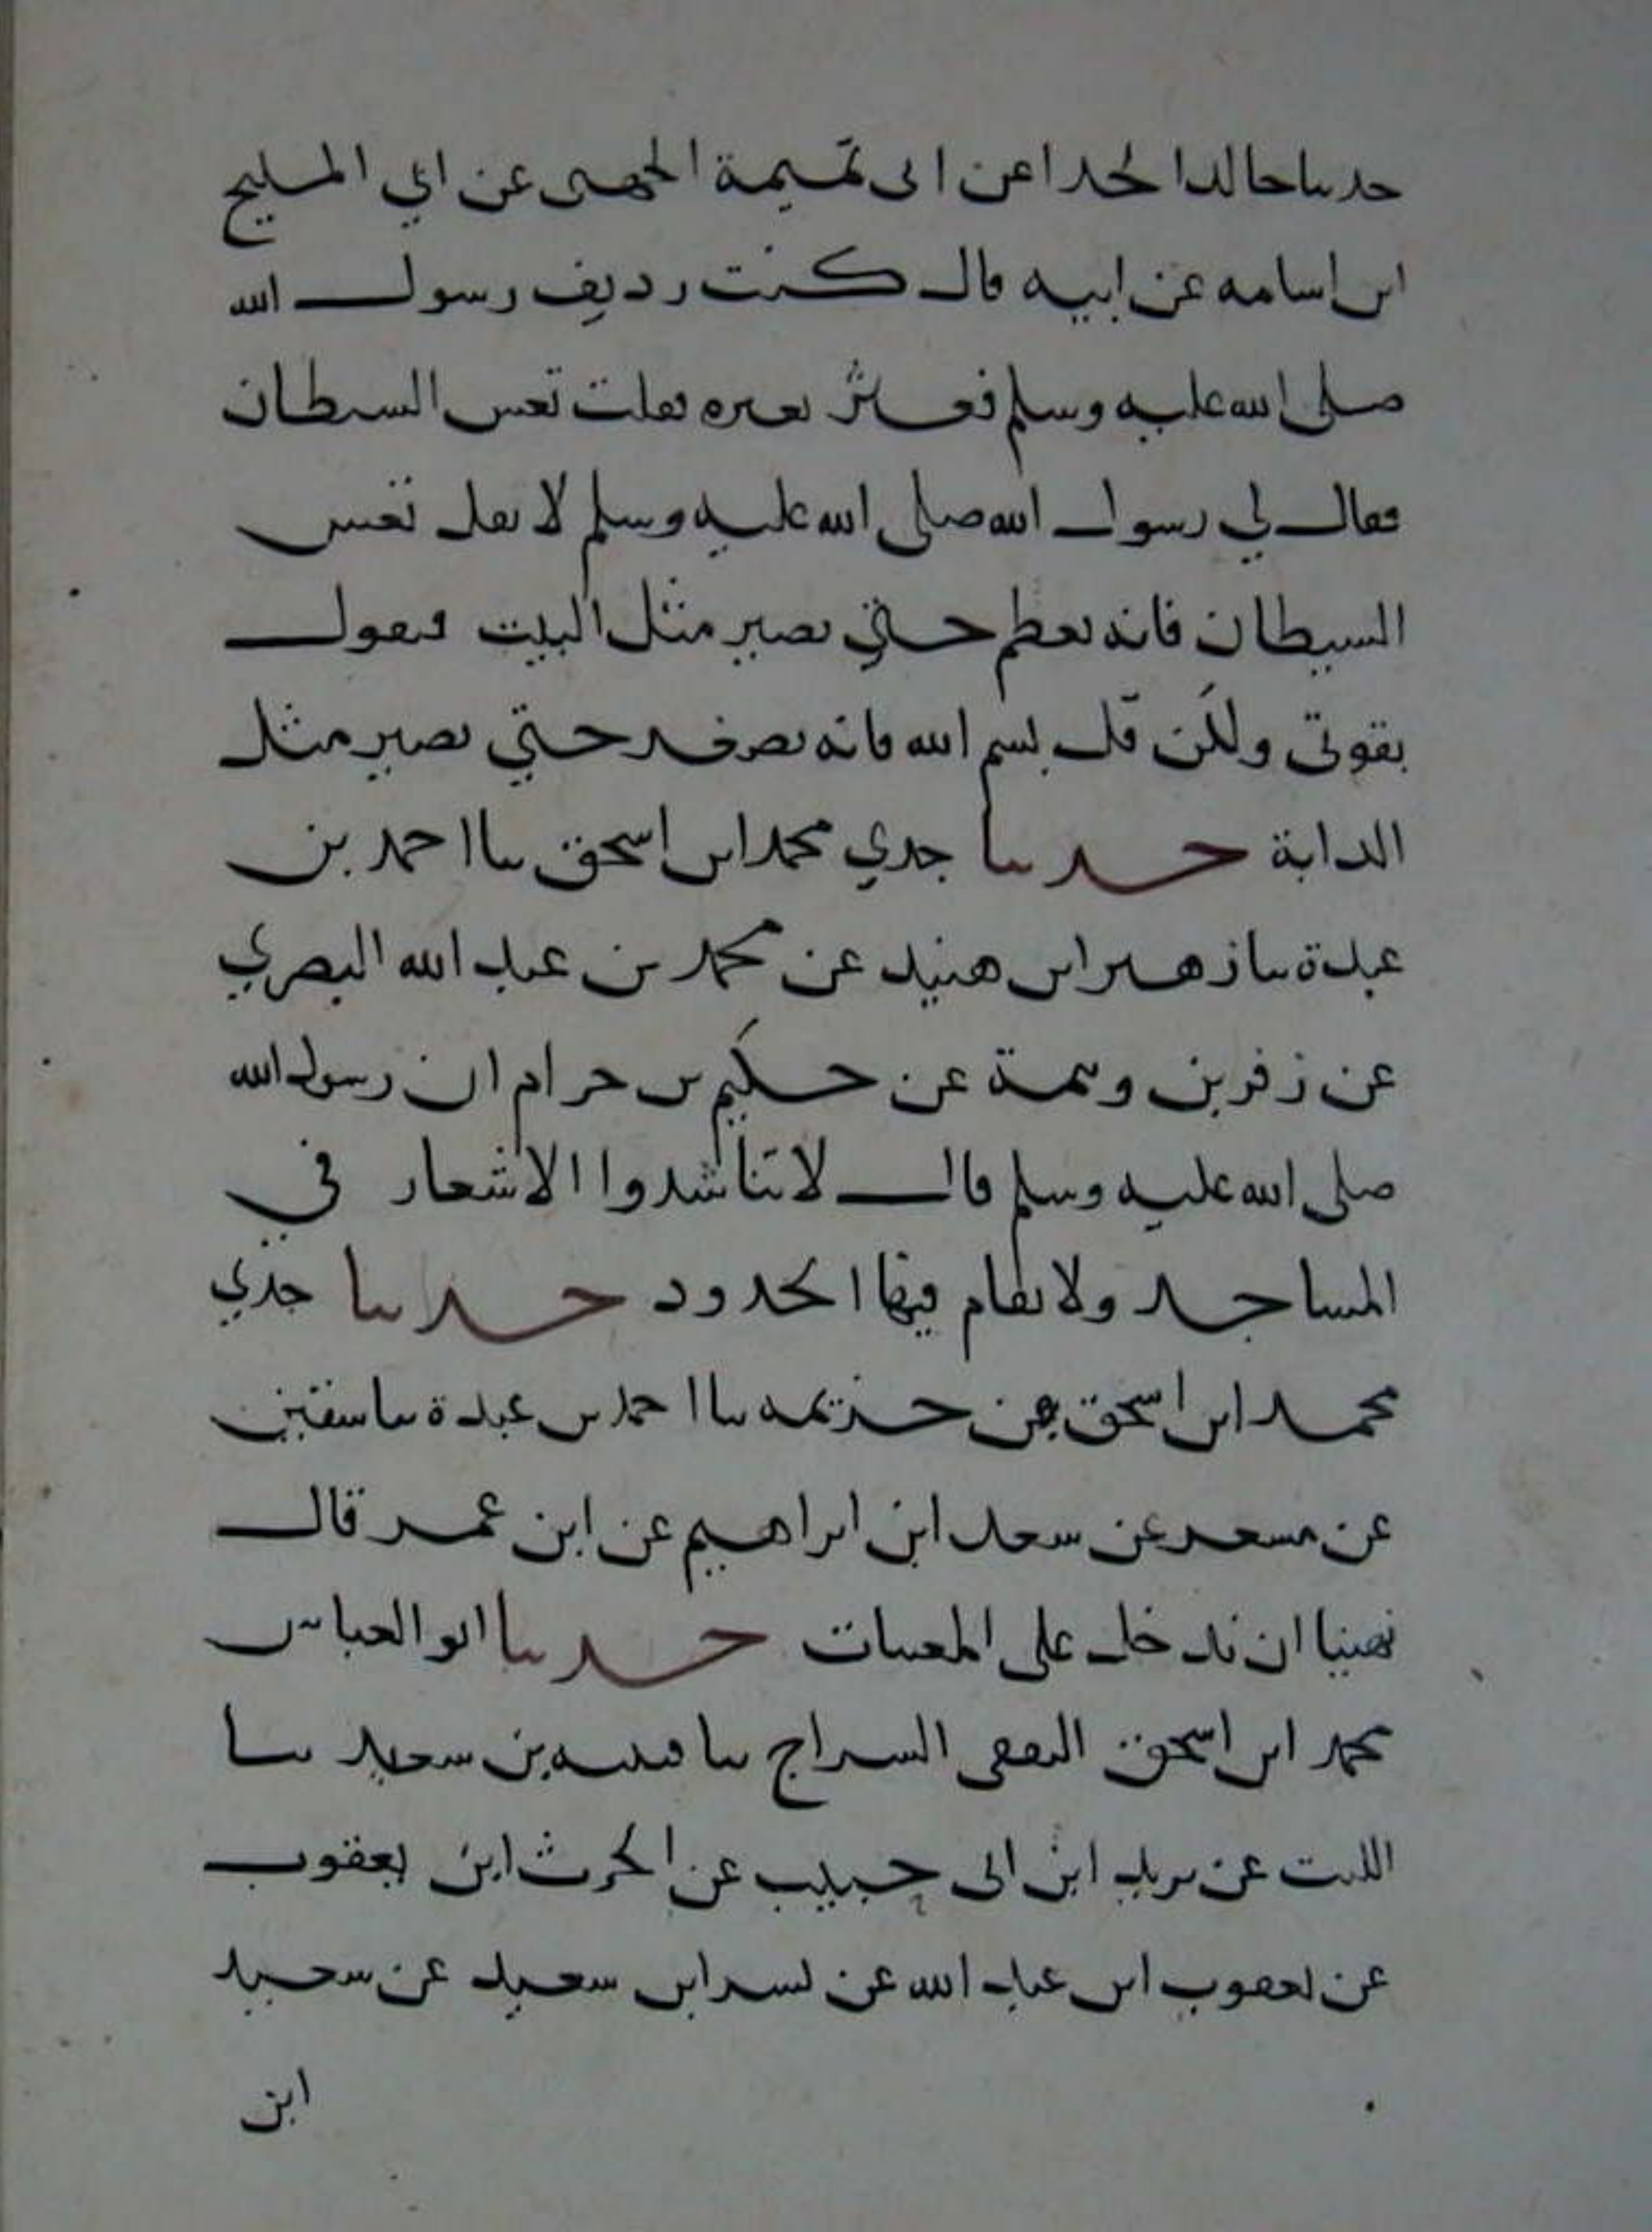 حدثنا خالد الحذا عن ابى تميمة الجهمى عن ابي المليح
ابن اسامه عن ابيه قال كنت رديف رسول الله
صلى الله عليه وسلم فعثر بعيره فقلت تعس الشيطان
فقال لي رسول الله صلى الله عليه وسلم لا تقل تعس
الشيطان فانه يعظم حتي يصير مثل البيت فيقول
بقوتى ولكن قل بسم الله فانه يصغر حتي يصير مثل
الدابة حدثنا جدي محمد ابن اسحق ثنا احمد بن
عبدة ثنا زهير ابن هنيد عن محمد بن عبد الله البصري
عن زفر بن وثمة عن حكيم بن حزام ان رسول الله
صلى الله عليه وسلم قال لا تناشدوا الاشعار في
المساجد ولا تقام فيها الحدود حدثنا جدي
محمد ابن اسحق بن خزيمه ثنا احمد بن عبدة ثنا سفين
عن مسعر عن سعد ابن ابراهيم عن ابن عمر قال
نهينا ان ندخل على المغيبات حدثنا ابو العباس
محمد ابن اسحق الثقفى السراج ثنا قتيبه بن سعيد ثنا
الليث عن يزيد ابن ابى حبيب عن الحرث ابن يعقوب
عن يعقوب ابن عبد الله عن بسر ابن سعيد عن سعيد
ابن